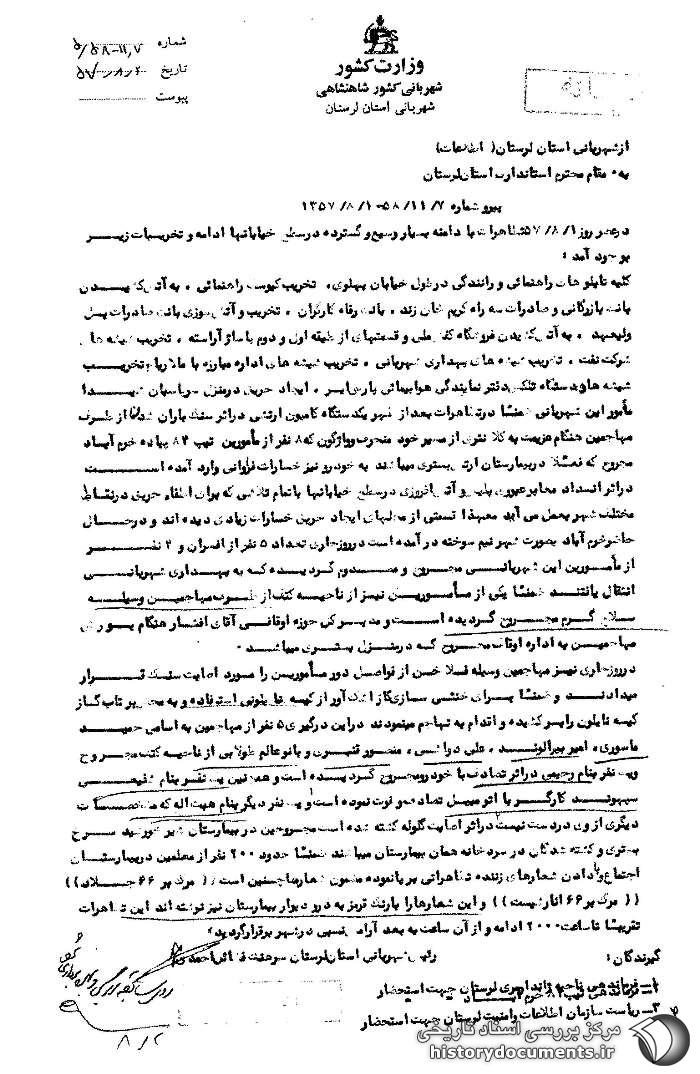 شماره ۵/۵۸-۱۱,۷
تاریخ
پیوست
وزارت کشور
شهربانی کشور شاهنشاهی
شهربانی استان لرستان
از شهربانی استان لرستان ( اطلاعات )
به مقام محترم استاندارى استان لرستان
پیرو شماره ۵۸/۱۱/۷-۱۳۵۷/۸/۱
در عصر روز ۵۷/۸/۱ تظاهرات با دامنه بسیار وسیع و گسترده در سطح خیابانها ادامه و تخریبات زیر
بوجود آمد :
کلیه تابلوهات راهنمائی و رانندگی در طول خیابان پهلوی ، تخریب کیوسک راهنمائی ، به آتش کشیدن
بانک بازرگانی و صادرات سه راه کریم خان زند ، بانک رفاه کارگران ، تخریب و آتش سوزی بانک صادرات پل
ولیعهد ، به آتش کشیدن فروشگاه کفش ملی و قسمتهای از طبقه اول و دوم پاساژ آراسته ، تخریب شیشه های
شرکت نفت ، تخریب شیشه های بهداری شهربانی ، تخریب شیشه های اداره مبارزه با مالاریا و تخریب
شیشه ها و دستگاه تلکس دفتر نمایندگی هواپیمائی پارس ایر ، ایجاد حریق در منزل
مأمور این شهربانی ضمنا در تظاهرات بعد از ظهر یکدستگاه کامیون ارتشی در اثر سنگ باران از طرف
مهاجمین هنگام عزیمت به کلانتری از مسیر خود منحرف و واژگون که ۸ نفر از مأمورین تیپ ۸۴ پیاده خرم آباد
مجروح که فعلا در بیمارستان ارتش بستری میباشند به خودرو نیز خسارات فراوانی وارد آمده است
در اثر انسداد معابر عبوری پلیس و آتش افروزی در سطح خیابانها با تمام تلاشی که برای اطفاء حریق در نقاط
مختلف شهر بعمل می آید معهذا قسمتی از محلهای ایجاد حریق خسارات زیادی دیده اند و در حال
حاضر خرم آباد بصورت شهر نیم سوخته در آمده است در روز جاری تعداد ۵ نفر از افسران و ۲ نفر
از مأمورین این شهربانی مجروح و مصدوم گردیده که به بهداری شهربانی
انتقال یافتند ضمنا یکی از مأمورین نیز از ناحیه کتف از طرف مهاجمین وسیله
سلاح گرم مجروح گردیده است و مدیر کل حوزه اوقافی آقای افشار هنگام یورش
مهاجمین به اداره اوقاف مجروح که در منزل بستری میباشد .
در روز جاری نیز مهاجمین وسیله فلاخن از فواصل دور مأمورین را مورد اصابت سنگ قرار
میدادند و ضمنا برای خنثی سازی گاز اشک آور از کیسه نایلونی استفاده و به محض پرتاب گاز
کیسه نایلون را بسر کشیده و اقدام به تهاجم مینمودند در این درگیری ۵ نفر از مهاجمین به اسامی حمید
ماسوری ، امیر بیرالوند ، علی دوائسی ، منصور قنبری و بانو عالم طولابی از ناحیه کتف مجروح
ویک نفر بنام رحیمی در اثر تصادف با خودرو مجروح گردیده است و همچنین یک نفر بنام
سپهوند کارگر با اتومبیل تصادف و فوت نموده است و یک نفر دیگر بنام هیبت اله که مشخصات
دیگری از وی در دست نیست در اثر اصابت گلوله کشته شده است مجروحین در بیمارستان شیر خورشید سرخ
بستری و کشته شدگان در سردخانه همان بیمارستان میباشند ضمنا حدود ۲۰۰ نفر از معلمین در بیمارستان
اجتماع و دادن شعارهای زننده تظاهراتی بر پا نموده مضمون شعارها چنین است (( مرگ بر ۶۶ جلاد ))
(( مرگ بر ۶۶ )) و این شعارها را با رنگ قرمز به در و دیوار بیمارستان نیز نوشته اند این تظاهرات
تقریبا تا ساعت ۲۰۰۰ ادامه و از آن ساعت به بعد آرامش نسبی در شهر برقرار گردید .
رئیس شهربانی استان لرستان سرهنگ
گیرندگان :
۱- فرماندهی ناحیه ژاندارمری لرستان جهت استحضار
فرماندهی تیپ ۸۴ خرم آباد
۳- ریاست سازمان اطلاعات و امنیت لرستان جهت استحضار
۸/۲
مرکز بررسی اسناد تاریخی
historydocuments.ir